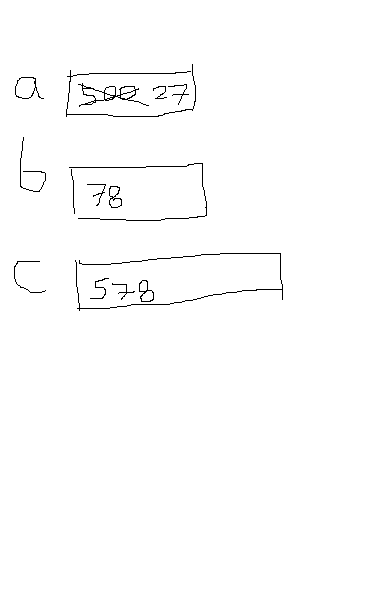 a 500 27
b 78
c 578